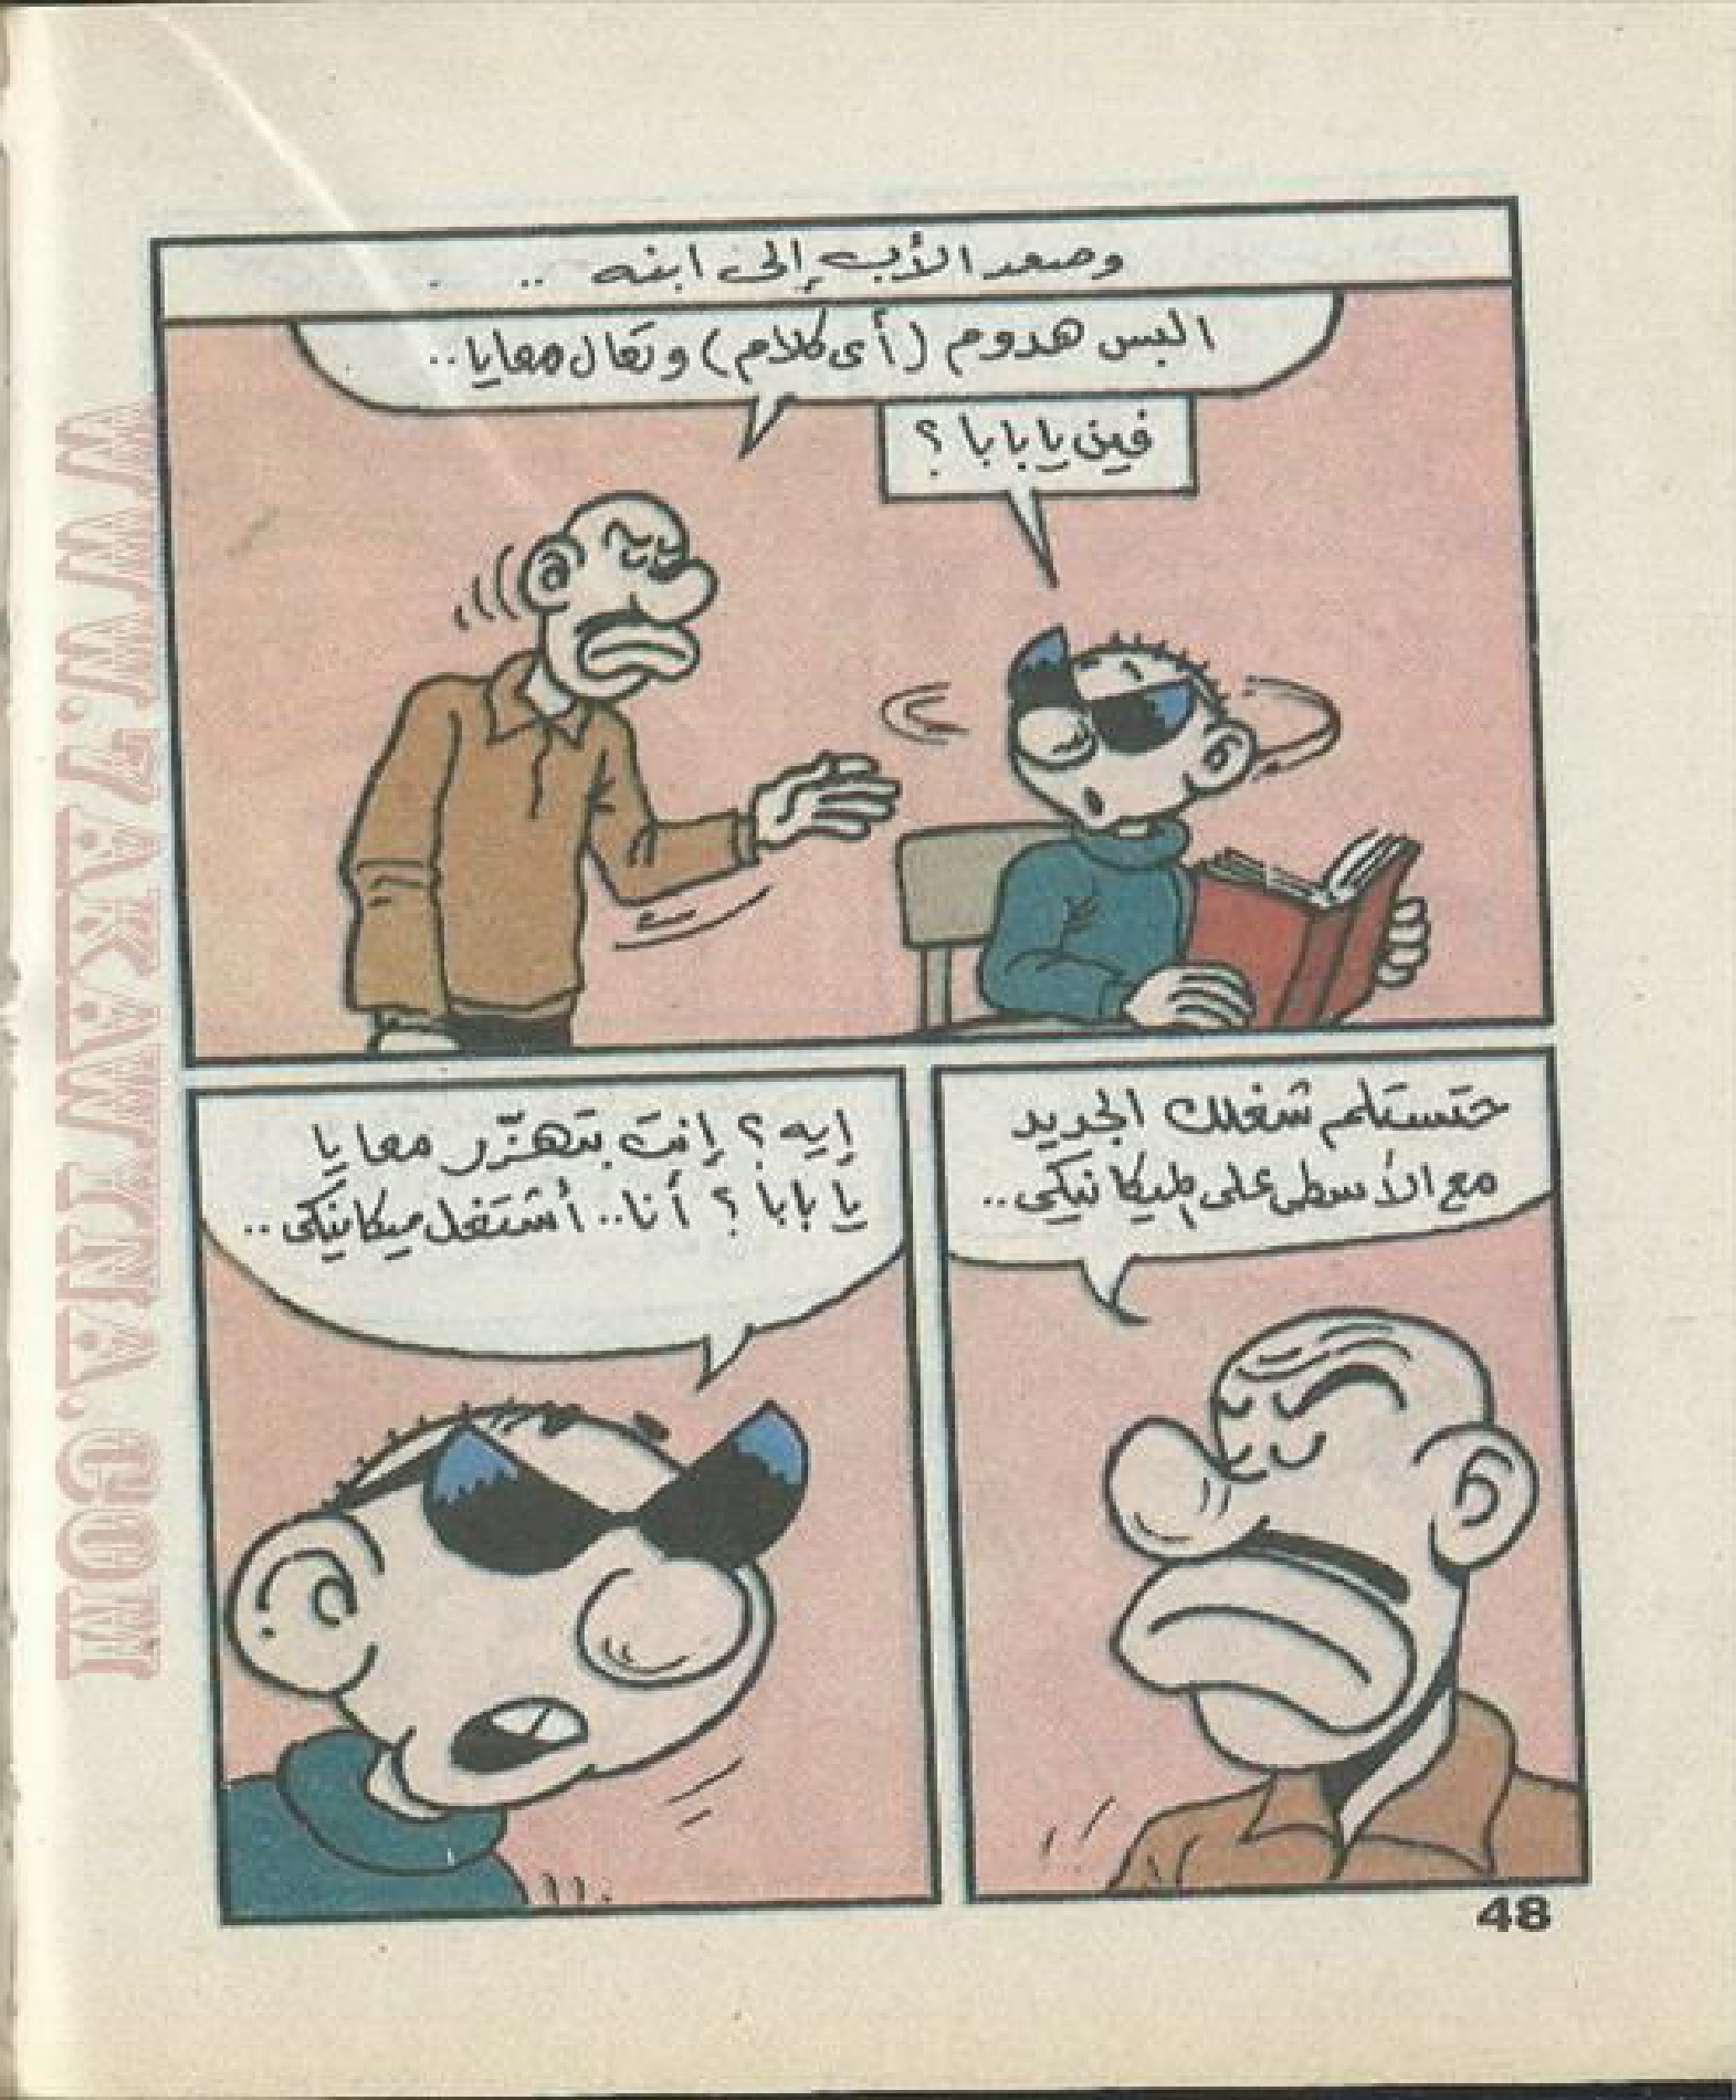 وصعد الأب إلى ابنه ..
البس هدوم (أى كلام) وتعال معايا..
فين يا بابا ؟
حتستلم شغلك الجديد
مع الأسطى على الميكانيكى..
إيه ؟ إنت بتهزّر معايا
يا بابا ؟ أنا.. أشتغل ميكانيكى..
48
WWW.7AKAWITNA.COM